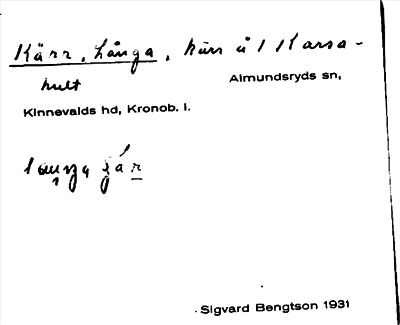 Kärr, Långa, kärr å l Karsa-
hult
Almundsryds sn,
Kinnevalds hd, Kronob. l.
Sigvard Bengtson 1931